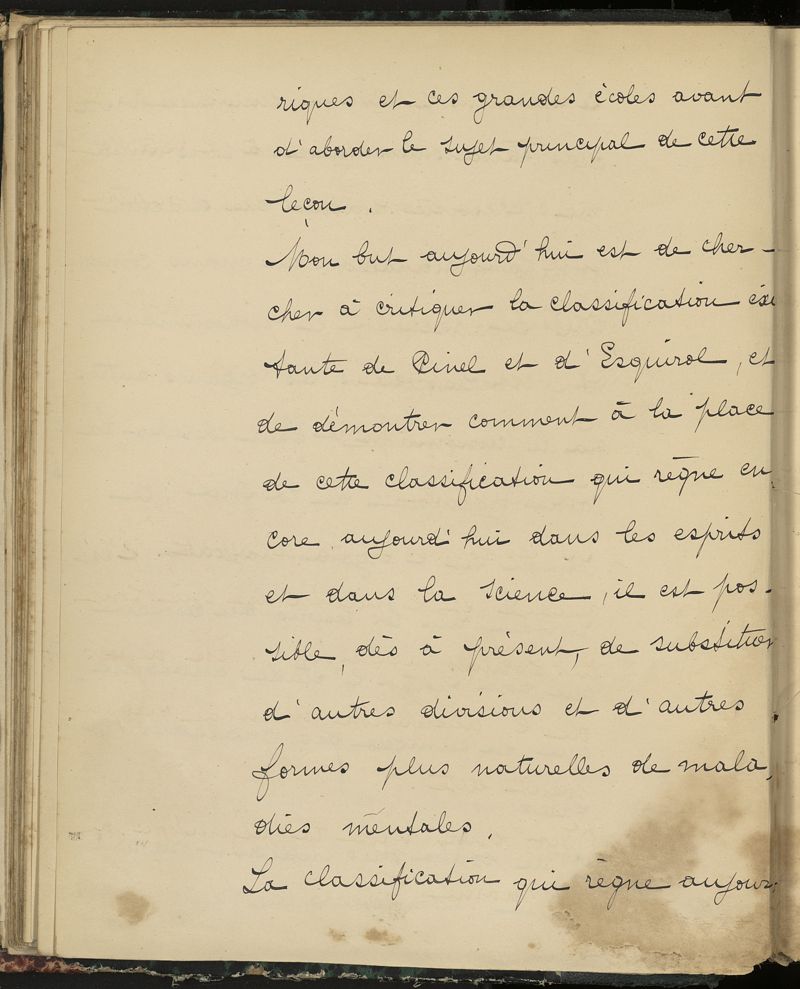 riques et ces grandes écoles avant
d'aborder le sujet principal de cette
leçon.
Mon but aujourd'hui est de cher-
cher à critiquer la classification éxis
tante de Pinel et d'Esquirol, et
de démontrer comment à la place
de cette classification qui règne en-
core aujourd'hui dans les esprits
et dans la science, il est pos-
sible, dès à présent, de substituer
d'autres divisions et d'autres
formes plus naturelles de mala-
dies mentales.
La classification qui règne aujour-